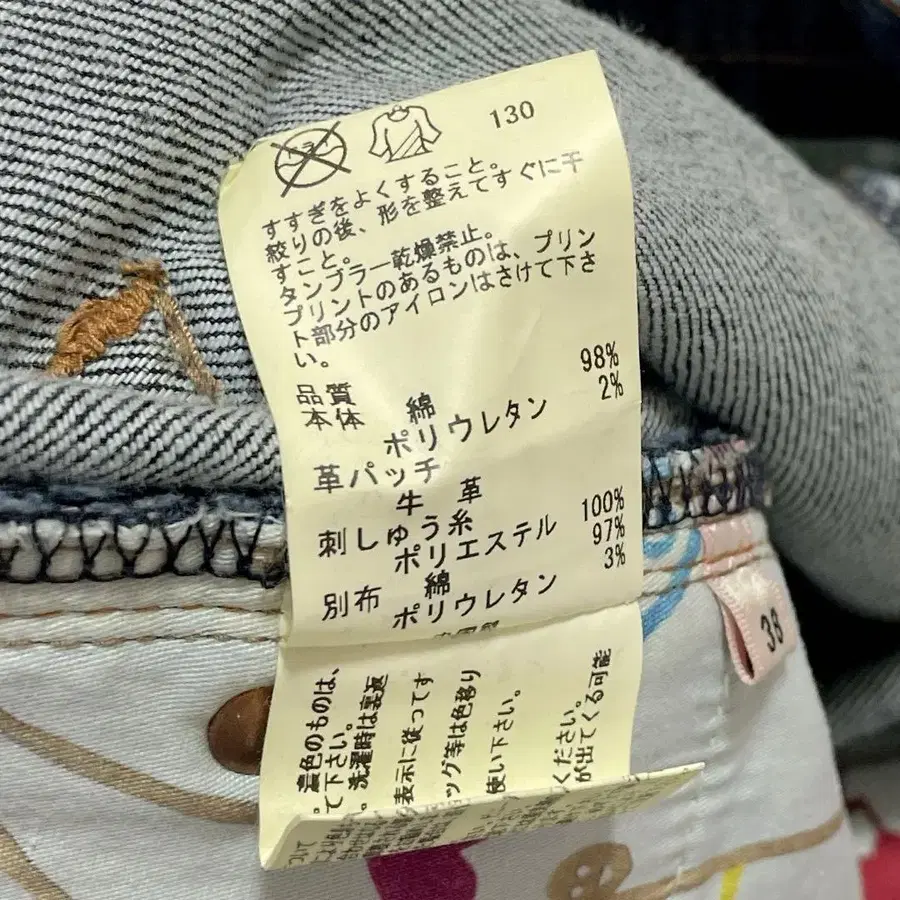 130
すすぎをよくすること。
絞りの後、形を整えてすぐに干
すこと。
タンブラー乾燥禁止。
プリントのあるものは、プリン
ト部分のアイロンはさけて下さ
い。
品質
本体 綿 98%
ポリウレタン 2%
革パッチ
牛 革
刺しゅう糸
ポリエステル 100%
別布 綿 97%
ポリウレタン 3%
38
濃色のものは、
て下さい。
洗濯時は裏返
表示に従ってす
ッグ等は色移り
使い下さい。
ください。
が出てくる可能